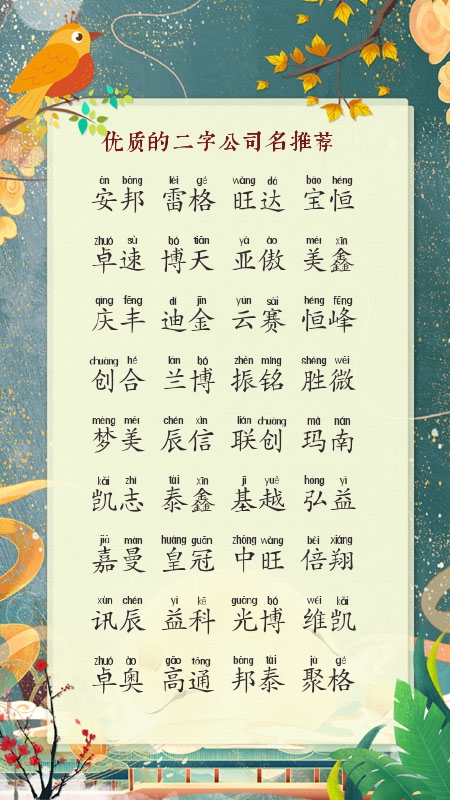 优质的二字公司名推荐
ān bāng léi gé wàng dá bǎo héng
安邦 雷格 旺达 宝恒
zhuó sù bó tiān yà ào měi xīn
卓速 博天 亚傲 美鑫
qìng fēng dí jīn yún sài héng fēng
庆丰 迪金 云赛 恒峰
chuàng hé lán bó zhèn míng shèng wēi
创合 兰博 振铭 胜微
mèng měi chén xìn lián chuàng mǎ nán
梦美 辰信 联创 玛南
kǎi zhì tài xīn jī yuè hóng yì
凯志 泰鑫 基越 弘益
jiā màn huáng guān zhōng wàng bèi xiáng
嘉曼 皇冠 中旺 倍翔
xùn chén yì kē guāng bó wéi kǎi
讯辰 益科 光博 维凯
zhuó ào gāo tōng bāng tài jù gé
卓奥 高通 邦泰 聚格